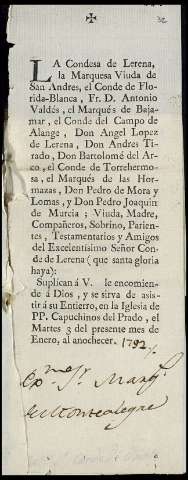 LA Condesa de Lerena,
la Marquesa Viuda de
San Andres, el Conde de Flo-
rida-Blanca, Fr. D. Antonio
Valdés, el Marqués de Baja-
mar, el Conde del Campo de
Alange, Don Angel Lopez
de Lerena, Don Andres Ti-
rado, Don Bartolomé del Ar-
co, el Conde de Torrehermo-
sa, el Marqués de las Hor-
mazas, Don Pedro de Mora y
Lomas, y Don Pedro Joaquin
de Murcia; Viuda, Madre,
Compañeros, Sobrino, Parien-
tes, Testamentarios y Amigos
del Excelentísimo Señor Con-
de de Lerena (que santa gloria
haya):
Suplican á V. le encomien-
de á Dios, y se sirva de asis-
tir á su Entierro, en la Iglesia de
PP. Capuchinos del Prado, el
Martes 3 del presente mes de
Enero, al anochecer. 1792
Exmo Sr. Marqs.
de Montealegre